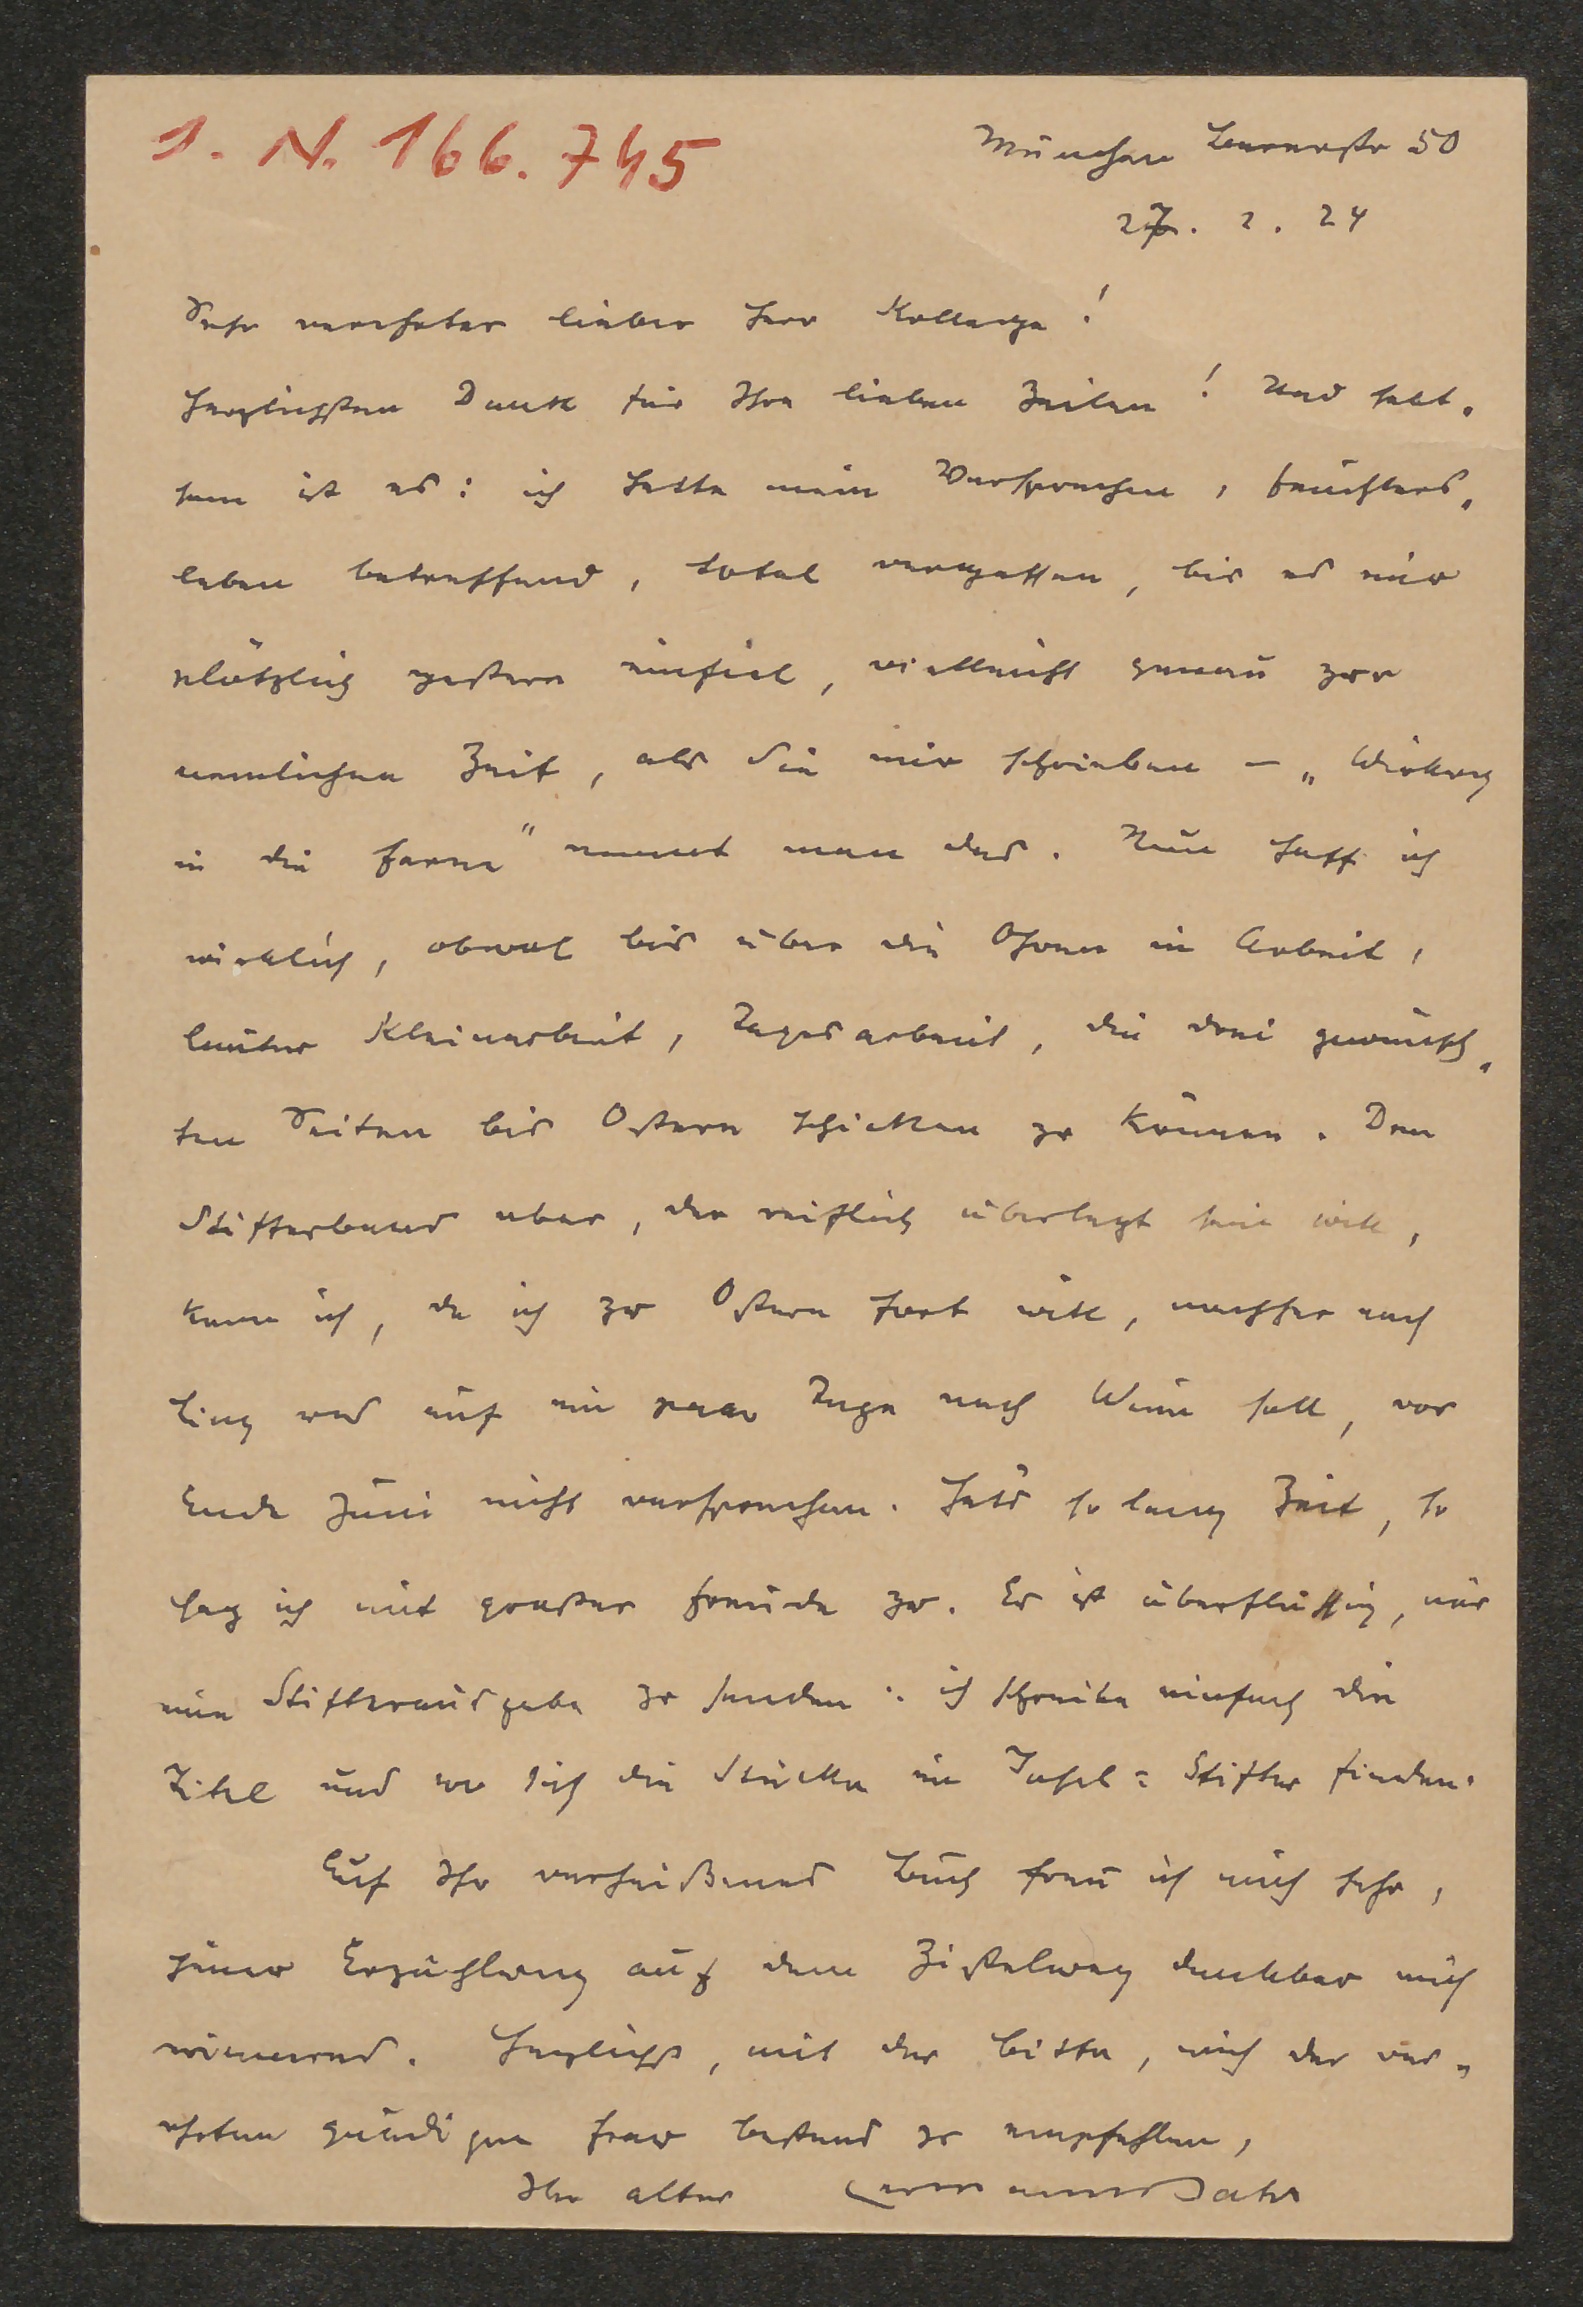 I. N. 166.745
München Barerstr 50
27. 2. 24
Sehr verehrter lieber Herr Kollege!
Herzlichsten Dank für Ihre lieben Zeilen! Und selt-
sam ist es: ich hatte mein Versprechen, Feuchters-
leben betreffend, total vergessen, bis es mir
plötzlich gestern einfiel, vielleicht genau zur
nemlichen Zeit, als Sie mir schrieben – „Wirkung
in die Ferne“ nennt man das. Nun hoff ich
wirklich, obwol bis über die Ohren in Arbeit,
lauter Kleinarbeit, Tagesarbeit, die drei gewünsch-
ten Seiten bis Ostern schicken zu können. Den
Stifterband aber, der reiflich überlegt sein will,
kann ich, da ich zu Ostern fort will, nachher nach
Linz und auf ein paar Tage nach Wien soll, vor
Ende Juni nicht versprechen. Hats so lang Zeit, so
sag ich mit großer Freude zu. Es ist überflüssig, mir
eine Stifterausgabe zu senden: ich schreibe einfach die
Titel und wo sich die Stücke im Insel-Stifter finden.
Auf Ihr verheißenes Buch freu ich mich sehr,
jener Erzählung auf dem Zistelweg dankbar mich
erinnernd. Herzlichst, mit der Bitte, mich der ver-
ehrten gnädigen Frau bestens zu empfehlen,
Ihr alter Hermann Bahr